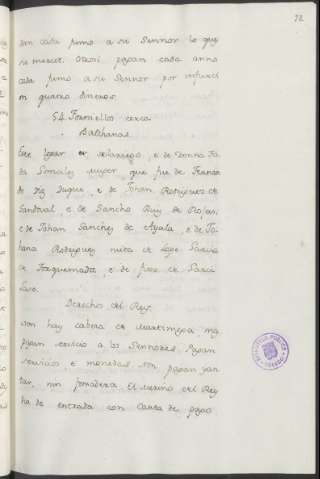 72
den cada fumo a su Sennor lo que
se merece. Otrosi pagan cada anno
cada fumo a su Sennor por infurci
on quatro dineros.
54 Forniellos cerca
Balthanas
Este logar es solariego, e de Donna Ta
da Gonzalez muger que fue de Ferrando
Diaz Duque, e de Johan Rodriguez de
Sandoval, e de Sancho Ruiz de Rojas,
e de Johan Sanchez de Ayala, e de Jo
hana Rodriguez nieta de Lope Garcia
de Torquemada, e de fijos de Garci
Laso.
Derechos del Rey.
Non hay cabeza de martiniega, nin
pagan servicio a los Sennores. Pagan
servicios e monedas, non pagan yan
tar, nin fonsadera. El merino del Rey
ha de entrada con Carta de pago